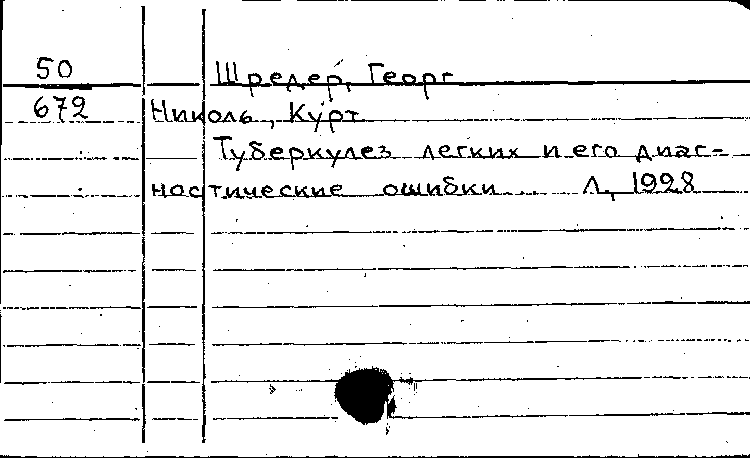 50 Шредер, Георг
672 Николь, Курт
Туберкулез легких и его диаг-
ностические ошибки... Л., 1928